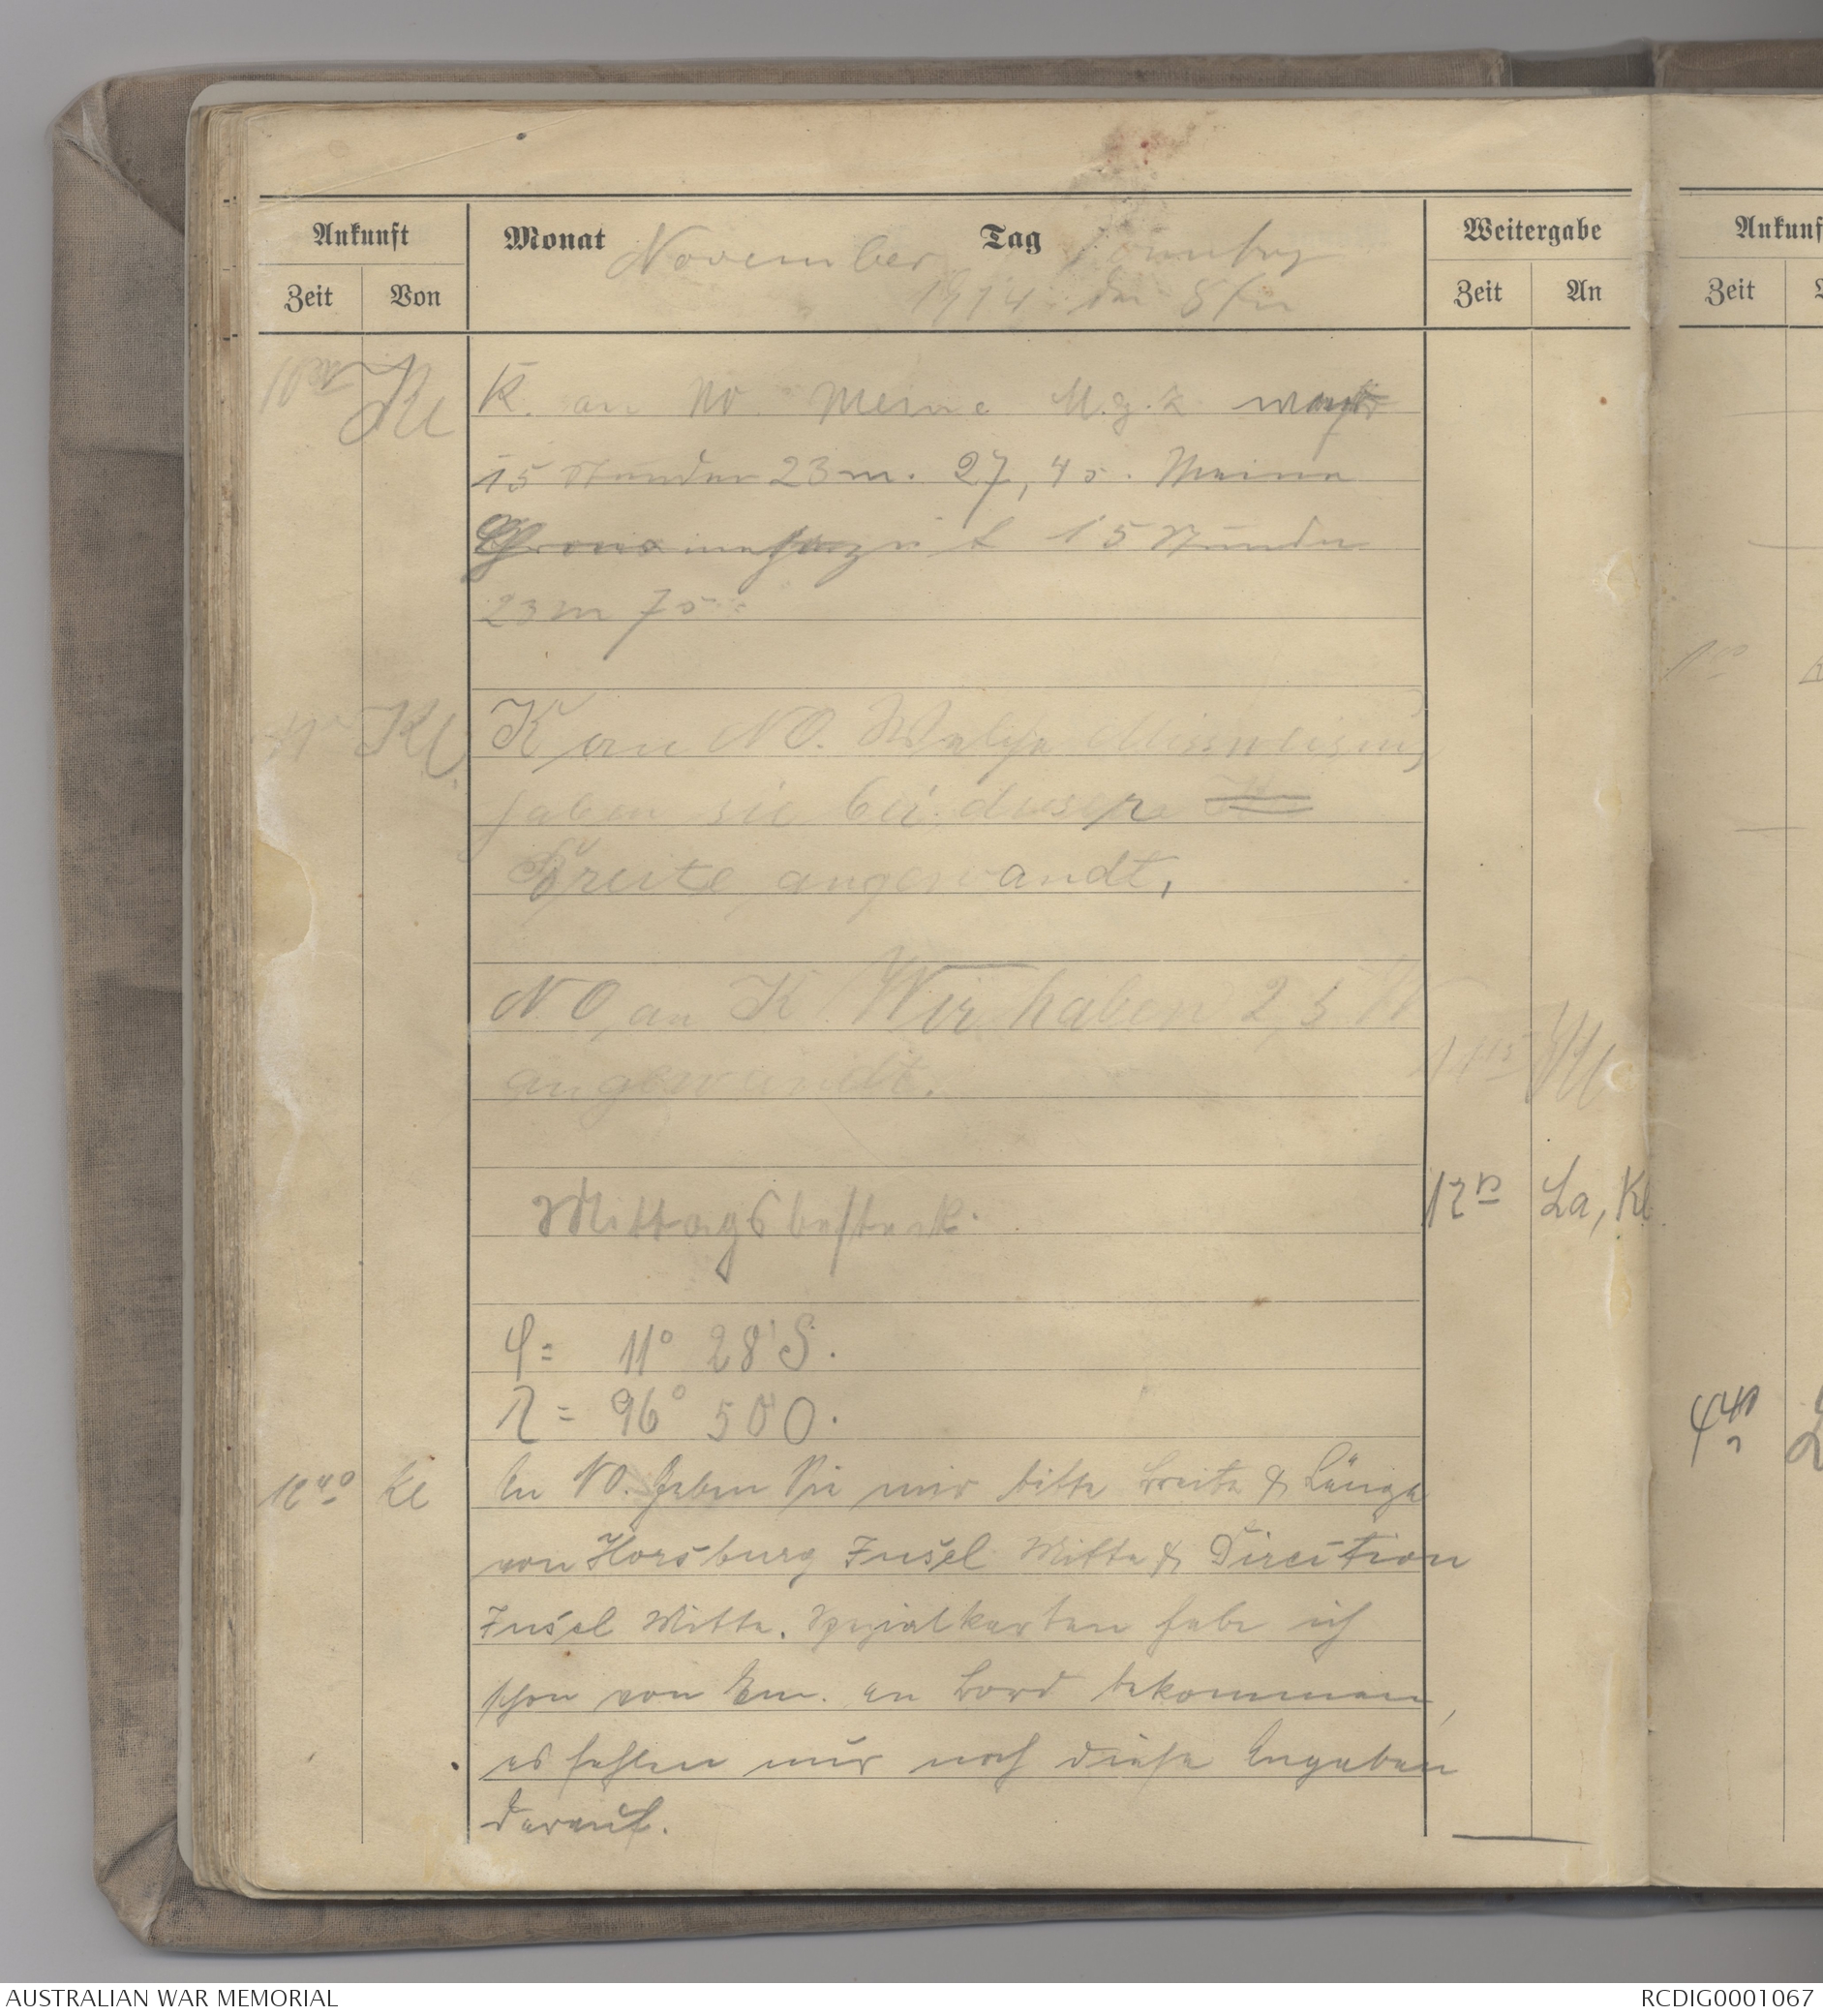 Ankunft
Monat November Tag Sonntag
Weitergabe
Zeit Von
1914 den 8ten
Zeit An
Kl K. an NO. Meine M.g.z. war
15 Stunden 23 m. 27,4 s. Meine
15 Stunden
23 m 7 s
Kl. K an NO. Welche Missweisung
haben sie bei dieser
Breite angewandt,
N.O, an K. Wir haben 2,3 W
angewandt.
Mittagsbesteck. 12 La, Kl
φ = 11° 28' S.
λ = 96° 50' O.
12 40 Kl An NO. Geben Sie mir bitte Breite & Länge
von Horsburg Insel Mitte & Direction
Insel Mitte. Spezialkarten habe ich
schon von Em. an Bord bekommen,
es fehlen nur noch diese Angaben
darauf.
Zeit
AUSTRALIAN WAR MEMORIAL
RCDIG0001067